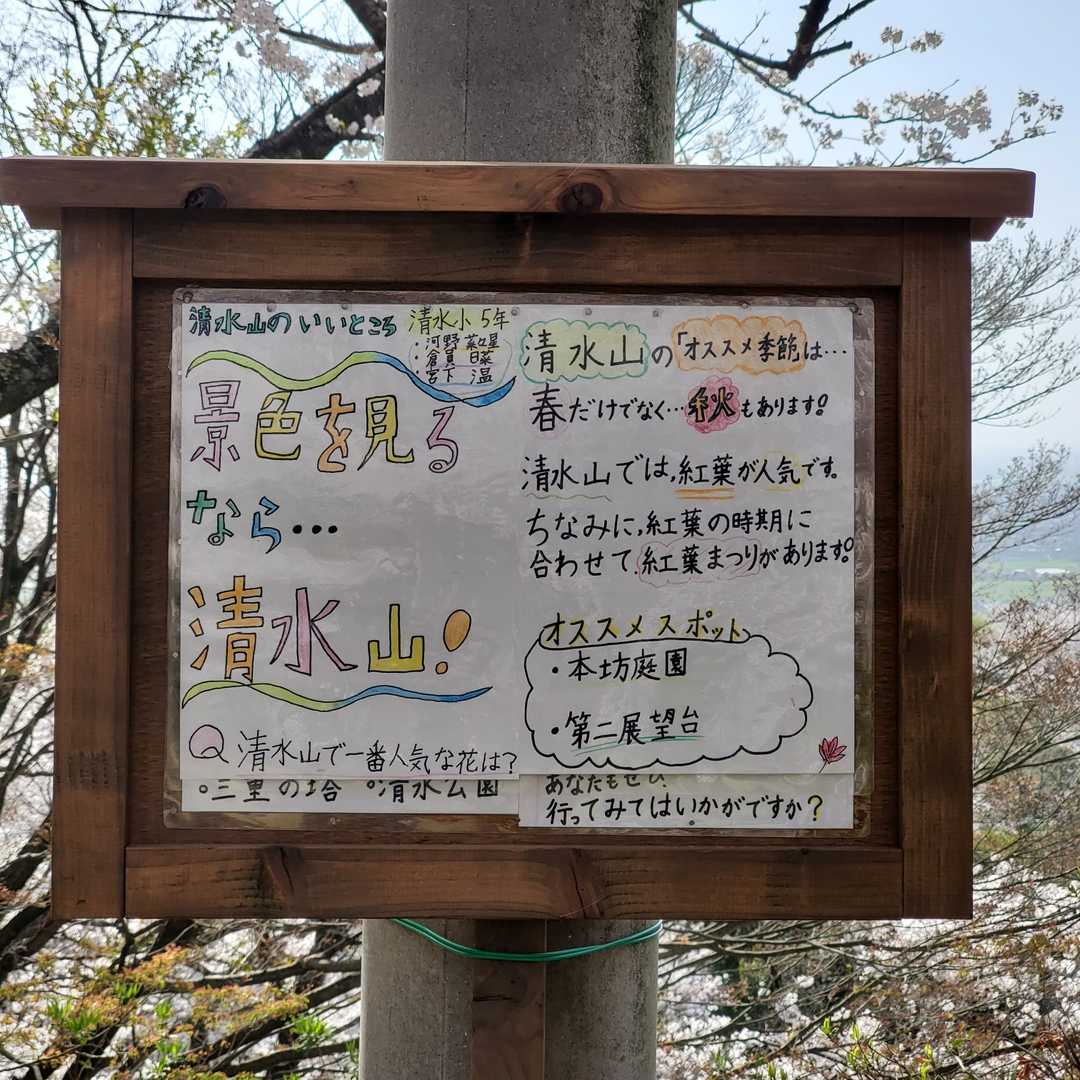 清水山のいいところ 清水小 5年
・河野 菜々星
・倉員 日菜
・宮下 温
景色を見る
なら…
清水山!
Q 清水山で一番人気な花は?
○三重の塔 ○清水公園
清水山の「オススメ季節」は…
春だけでなく…秋もあります!
清水山では,紅葉が人気です。
ちなみに,紅葉の時期に
合わせて,紅葉まつりがあります!
オススメスポット
・本坊庭園
・第二展望台
あなたもぜひ、
行ってみてはいかがですか?